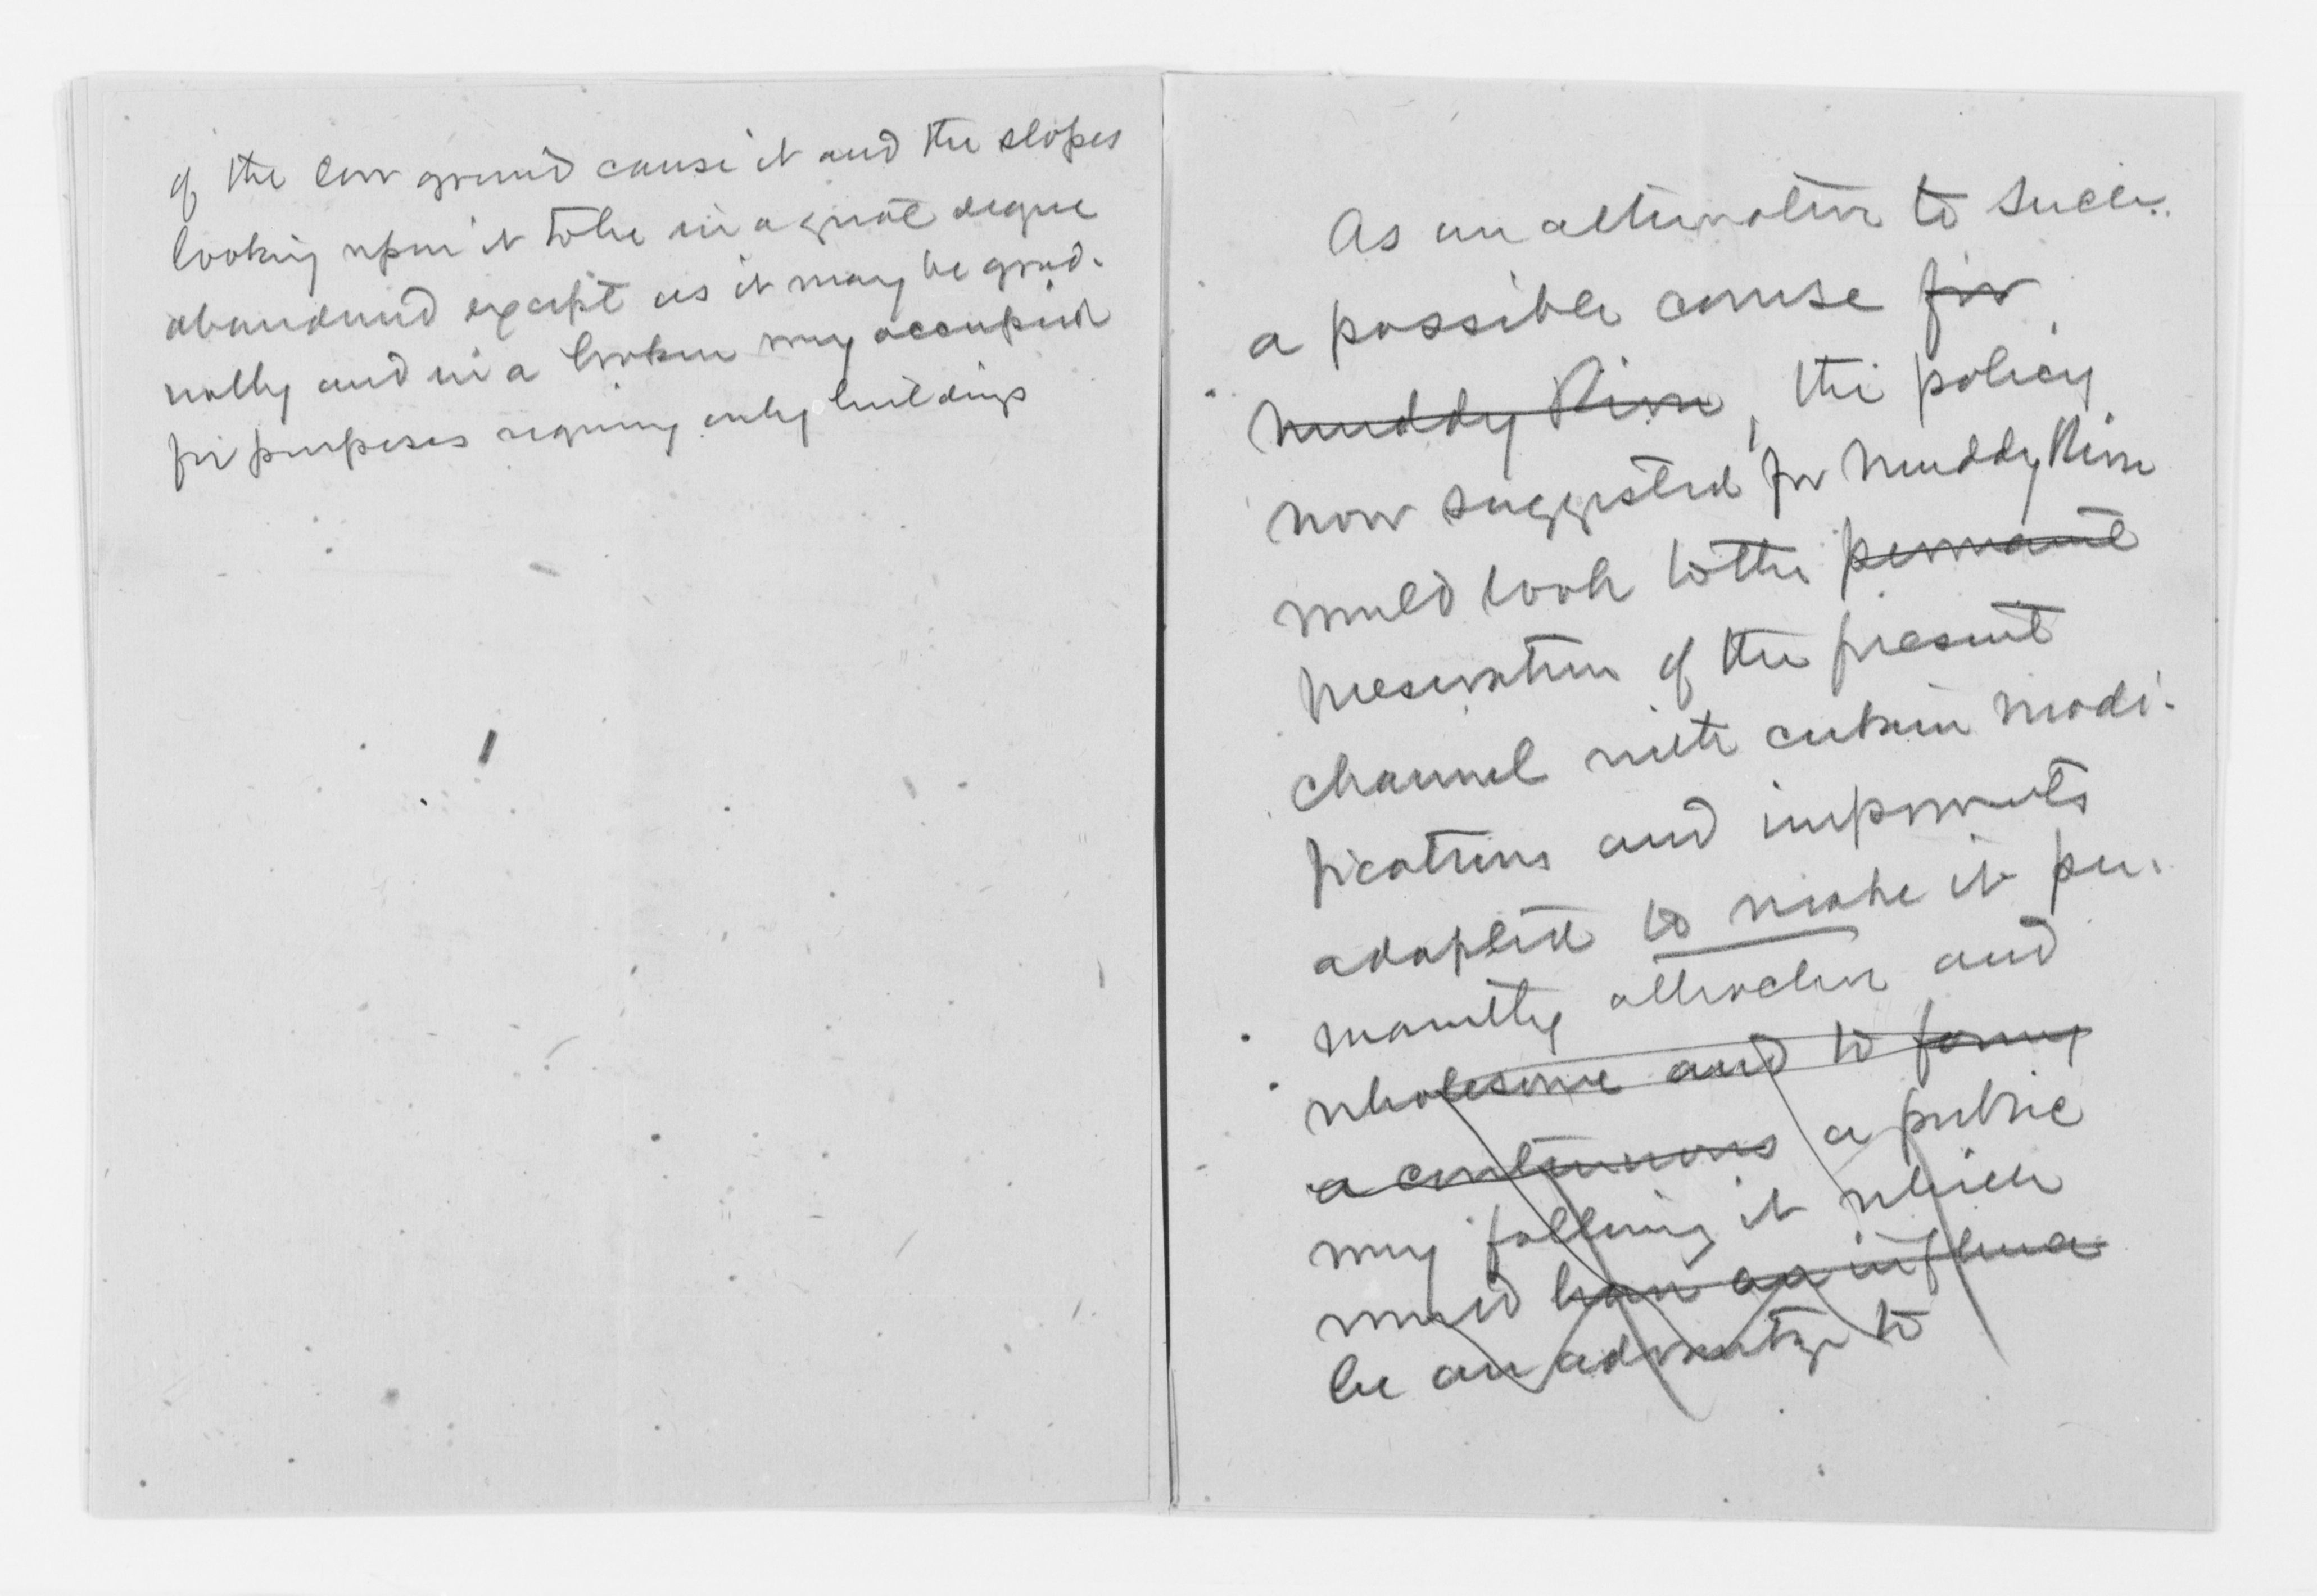 of the low ground cause it and the slopes
looking upon it to be in a great degree
abandoned except as it may be grad-
ually and in a broken way occupied
for purposes requiring only buildings
As an alternative to such
a possible course for
Muddy River, the policy
now suggested for Muddy River
would look to the permanent
preservation of the present
channel with certain modi-
fications and improvements
adapted to make it per-
manently attractive and
wholesome and to form
a continuous a public
way following it which
would have an influence
be an advantage to